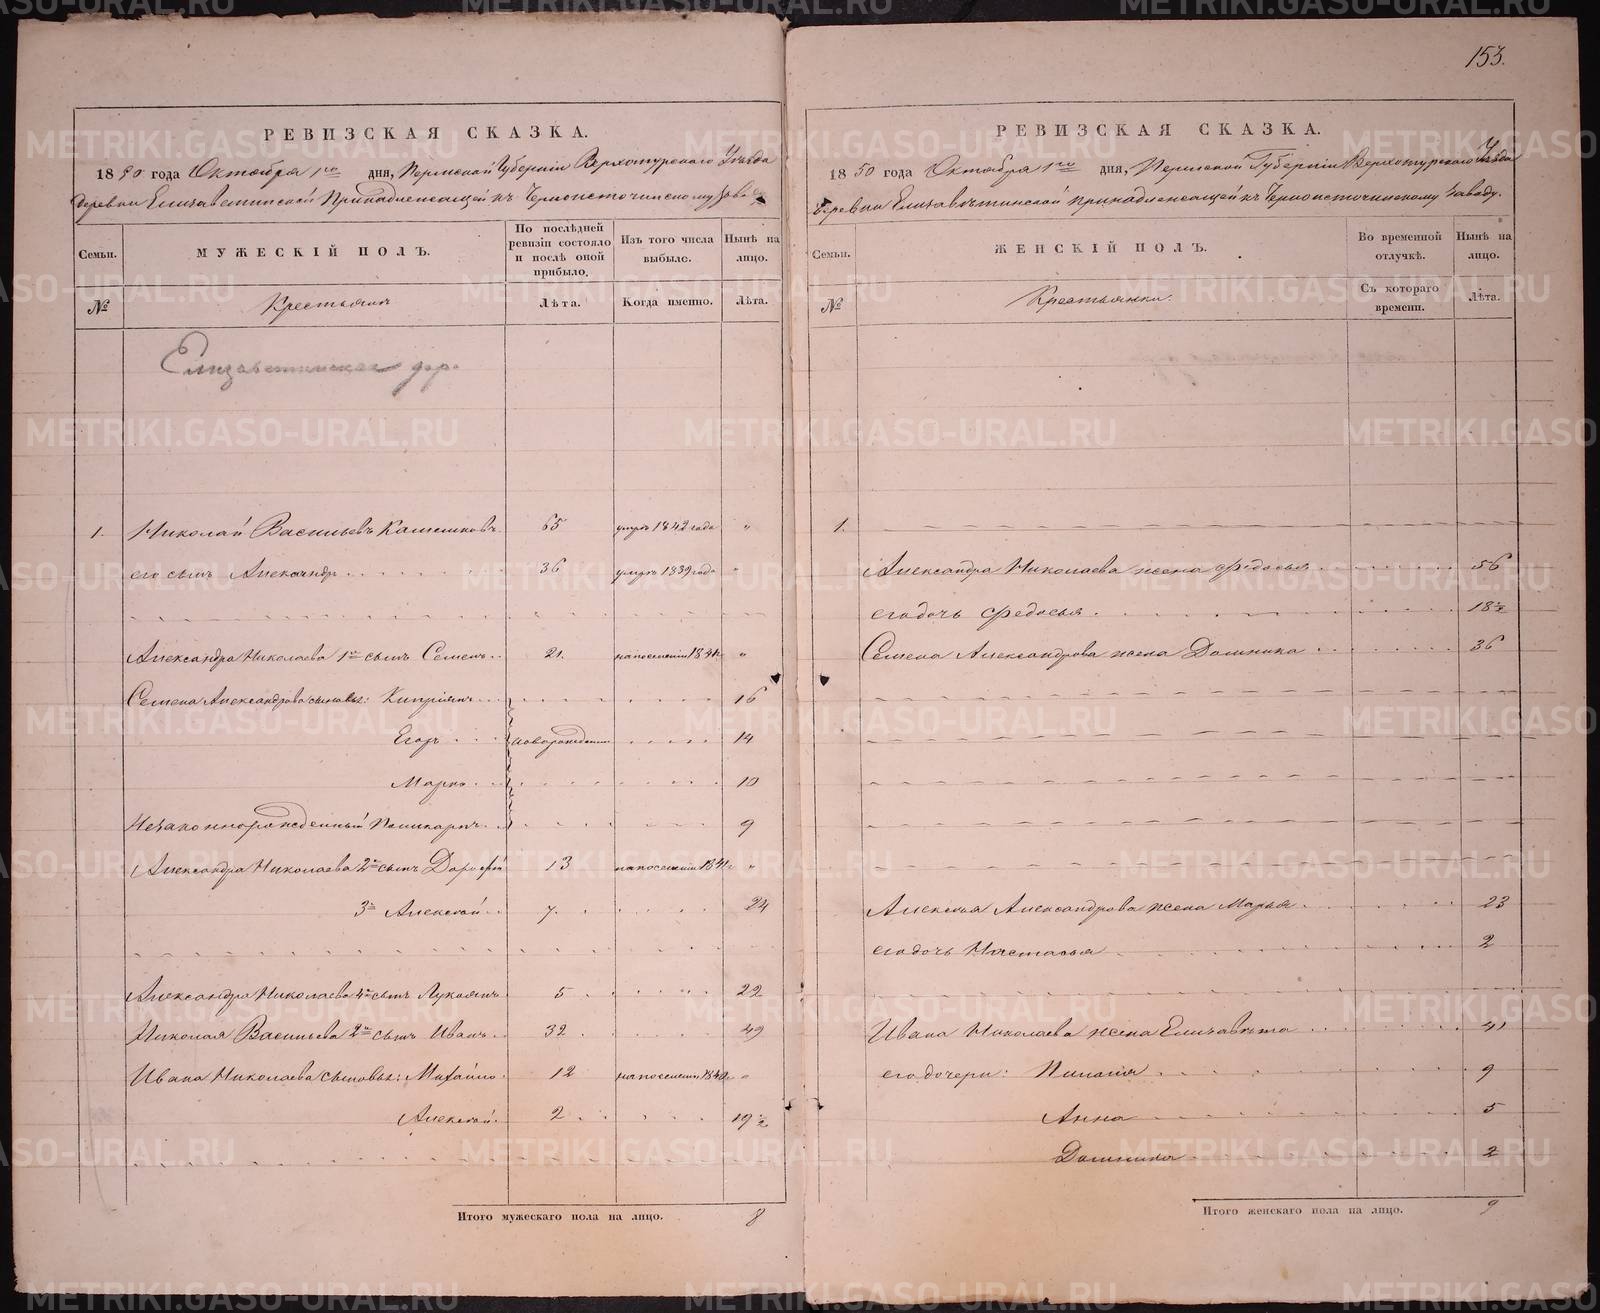 153.
РЕВИЗСКАЯ СКАЗКА.
1850 года Октября 1го дня, Пермской Губерніи Верхотурскаго Уѣзда
деревни Елизаветинской Принадлежащей къ Черноисточинскому Заводу
Семьи. МУЖЕСКІЙ ПОЛЪ. По послѣдней ревизіи состояло и послѣ оной прибыло. Изъ того числа выбыло. Нынѣ на лицо.
№ Крестьянъ Лѣта. Когда именно. Лѣта.
Елизаветинская дер.
1. Николай Васильевъ 65 умръ 1842 года "
его сынъ Александр 36 умръ 1839 года "
Александра Николаева 1й сынъ Семенъ 21. на поселеніи 1841г "
Семена Александрова сыновья: Кипріянъ 16
Егоръ новорожденны 14
Марко 10
Незаконнорожденный Поликарпъ 9
Александра Николаева 2й сынъ Дорофей 13 на поселеніи 1841г "
3й Алексей 7. 24
Александра Николаева 4й сынъ Лукоянъ 5 22
Николая Васильева 2й сынъ Иванъ 32 49
Ивана Николаева сыновья: Михайло 12 на поселеніи 1840г "
Алексей 2 19½
Итого мужескаго пола на лицо. 8
РЕВИЗСКАЯ СКАЗКА.
1850 года Октября 1го дня, Пермской Губерніи Верхотурскаго Уѣзда
деревни Елизавѣтинской принадлежащей къ Черноисточинскому Заводу.
Семьи. ЖЕНСКІЙ ПОЛЪ. Во временной отлучкѣ. Нынѣ на лицо.
№ Крестьянки. Съ котораго времени. Лѣта.
1.
Александра Николаева жена Федосья 56
его дочь Федосья 18½
Семена Александрова жена Домника 36
Алексея Александрова жена Марья 23
его дочь Настасья 2
Ивана Николаева жена Елизавѣта 41
его дочери: Пилагія 9
Анна 5
Домника 2
Итого женскаго пола на лицо. 9
METRIKI.GASO-URAL.RU